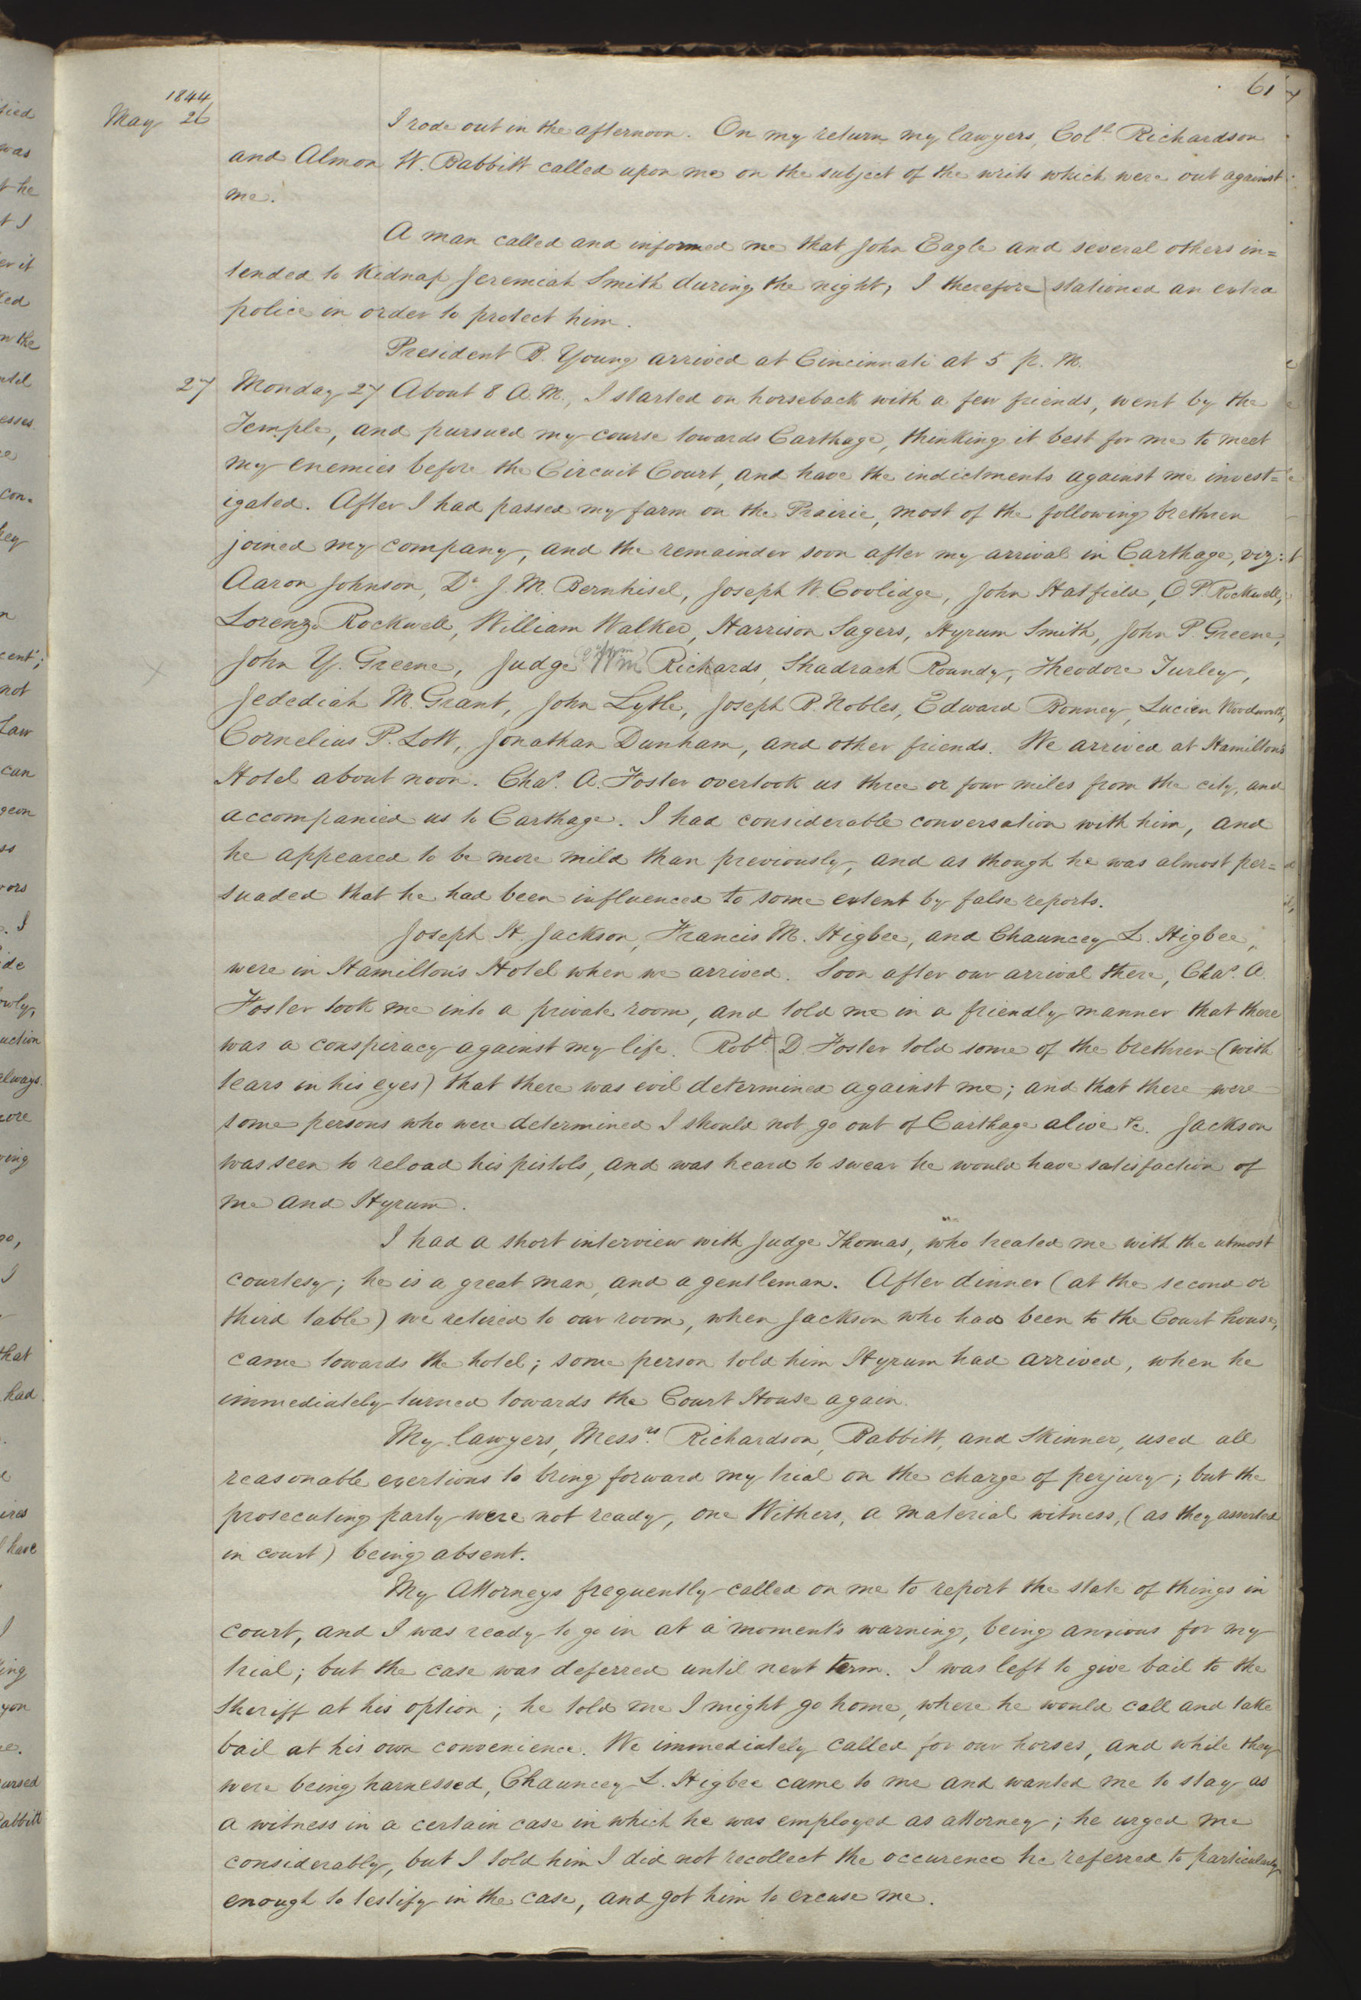 61
1844
May 26
I rode out in the afternoon. On my return my lawyers, Col.l Richardson
and Almon W. Babbitt called upon me on the subject of the writs which were out against
me.
A man called and informed me that John Eagle and several others in=
tended to kidnap Jeremiah Smith during the night, I therefore stationed an extra
police in order to protect him.
President B. Young arrived at Cincinnati at 5 p. M.
27 Monday 27 About 8 A.M., I started on horseback with a few friends, went by the
Temple, and pursued my course towards Carthage, thinking it best for me to meet
my enemies before the Circuit Court, and have the indictments against me invest=
igated. After I had passed my farm on the Prairie, most of the following brethren
joined my company, and the remainder soon after my arrival in Carthage, viz:
Aaron Johnson, Dr J. M. Bernhisel, Joseph W. Coolidge, John Hatfield, O P. Rockwell,
Lorenzo Rockwell, William Walker, Harrison Sagers, Hyrum Smith, John P. Greene,
John Y. Greene, Judge Wm Richards, Shadrach Roundy, Theodore Turley,
Jedediah M. Grant, John Lytle, Joseph B. Nobles, Edward Bonney, Lucien Woodworth,
Cornelius P. Lott, Jonathan Dunham, and other friends. We arrived at Hamilton's
Hotel about noon. Chas. A. Foster overtook us three or four miles from the city, and
accompanied us to Carthage. I had considerable conversation with him, and
he appeared to be more mild than previously, and as though he was almost per=
suaded that he had been influenced to some extent by false reports.
Joseph H. Jackson, Francis M. Higbee, and Chauncey L. Higbee,
were in Hamilton's Hotel when we arrived. Soon after our arrival there, Chas. A.
Foster took me into a private room, and told me in a friendly manner that there
was a conspiracy against my life. Robt. D. Foster told some of the brethren (with
tears in his eyes) that there was evil determined against me; and that there were
some persons who were determined I should not go out of Carthage alive &c. Jackson
was seen to reload his pistols, and was heard to swear he would have satisfaction of
me and Hyrum.
I had a short interview with Judge Thomas, who treated me with the utmost
courtesy; he is a great man, and a gentleman. After dinner (at the second or
third table) we retired to our room, when Jackson who had been to the Court house,
came towards the hotel; some person told him Hyrum had arrived, when he
immediately turned towards the Court House again.
My lawyers, Messrs Richardson, Babbitt, and Skinner, used all
reasonable exertions to bring forward my trial on the charge of perjury; but the
prosecuting party were not ready, one Withers, a material witness, (as they asserted
in court) being absent.
My Attorneys frequently called on me to report the state of things in
court, and I was ready to go in at a moment's warning, being anxious for my
trial; but the case was deferred until next term. I was left to give bail to the
Sheriff at his option; he told me I might go home, where he would call and take
bail at his own convenience. We immediately called for our horses, and while they
were being harnessed, Chauncey L. Higbee came to me and wanted me to stay as
a witness in a certain case in which he was employed as attorney; he urged me
considerably, but I told him I did not recollect the occurence he referred to particularly
enough to testify in the case, and got him to excuse me.